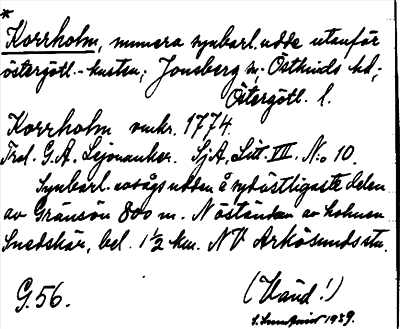 *
Korrholm, numera synbarl. udde utanför
östergötl.-kusten; Jonsberg sn; Östkinds hd;
Östergötl. l.
Korrholm omkr. 1774.
Trol. G.A. Lejonanker. SjA, Litt. VII. N:o 10.
Synbarl. avsågs udden å sydöstligaste delen
av Gränsön 800 m. N öständan av holmen
Snedskär, bel. 1½ km. NV Arkösunds stn.
G. 56.
(Vänd!)
1939.